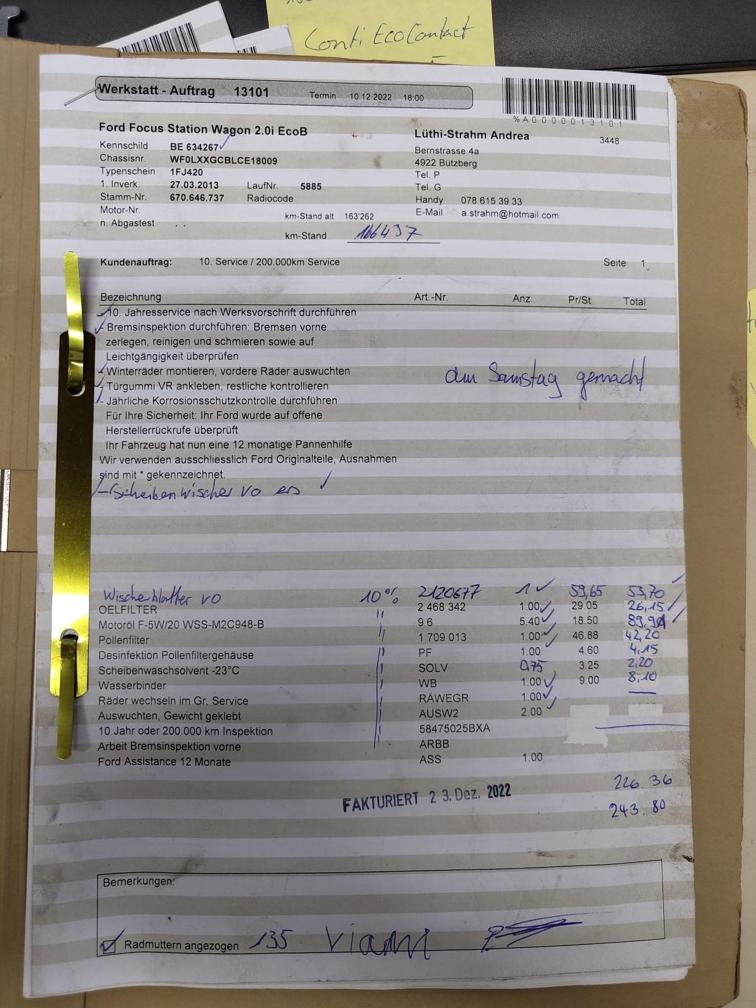 Conti EcoContact
Werkstatt - Auftrag 13101 Termin 10.12.2022 18:00
%A0000013101
Ford Focus Station Wagon 2.0i EcoB
Lüthi-Strahm Andrea 3448
Kennschild BE 634267
Bernstrasse 4a
Chassisnr. WF0LXXGCBLCE18009
4922 Bützberg
Typenschein 1FJ420
Tel. P
1. Inverk. 27.03.2013 LaufNr. 5885
Tel. G
Stamm-Nr. 670.646.737 Radiocode
Handy 078 615 39 33
Motor-Nr. km-Stand alt 163'262
E-Mail a.strahm@hotmail.com
n. Abgastest . .
km-Stand 166437
Kundenauftrag: 10. Service / 200.000km Service Seite 1
Bezeichnung Art.-Nr. Anz. Pr/St Total
10. Jahresservice nach Werksvorschrift durchführen
Bremsinspektion durchführen: Bremsen vorne
zerlegen, reinigen und schmieren sowie auf
Leichtgängigkeit überprüfen
Winterräder montieren, vordere Räder auswuchten
am Samstag gemacht
Türgummi VR ankleben, restliche kontrollieren
Jährliche Korrosionsschutzkontrolle durchführen
Für Ihre Sicherheit: Ihr Ford wurde auf offene
Herstellerrückrufe überprüft
Ihr Fahrzeug hat nun eine 12 monatige Pannenhilfe
Wir verwenden ausschliesslich Ford Originalteile, Ausnahmen
sind mit * gekennzeichnet.
- Scheibenwischer vo ers ✓
Wischerblätter vo 10% 2120677 1 ✓ 59,65 53,70
OELFILTER " 2 468 342 1.00 29.05 26,15
Motoröl F-5W/20 WSS-M2C948-B " 9 6 5.40 18.50
Pollenfilter " 1 709 013 1.00 46.88 42,20
Desinfektion Pollenfiltergehäuse PF 1.00 4.60 4.15
Scheibenwaschsolvent -23°C SOLV 0,75 3.25 2,20
Wasserbinder WB 1.00 9.00 8,10
Räder wechseln im Gr. Service RAWEGR 1.00
Auswuchten, Gewicht geklebt AUSW2 2.00
10.Jahr oder 200.000 km Inspektion 58475025BXA
Arbeit Bremsinspektion vorne ARBB
Ford Assistance 12 Monate ASS 1.00
226.36
FAKTURIERT 2 3. Dez. 2022
243.80
Bemerkungen:
Radmuttern angezogen 135